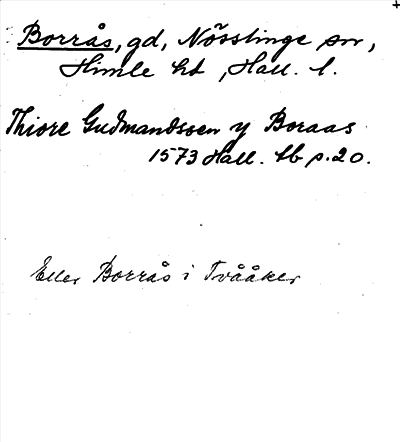 Borrås, gd, Nösslinge sn,
Himle hd, Hall. l.
Thiore Gudmandssen y Boraas
1573 Hall. lb p. 20.
Eller Borrås i Tvååker